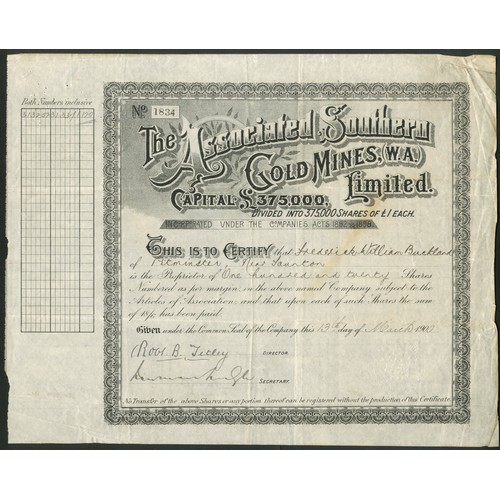 Both Numbers inclusive
No. 1834
The Associated Southern
Gold Mines, (W.A.)
Limited.
Capital £375,000,
Divided into 375,000 Shares of £1 each.
Incorporated under the Companies Acts 1862 to
This is to Certify that Frederick William Buckland
of Pitminster Near Taunton
is the Proprietor of One hundred and twenty Shares
Numbered as per margin, in the above named Company subject to the
Articles of Association; and that upon each of such Shares the sum
of has been paid.
Given under the Common Seal of the Company this 13th day of March 1900
Director.
Secretary.
No Transfer of the above Shares or any portion thereof can be registered without the production of this Certificate.